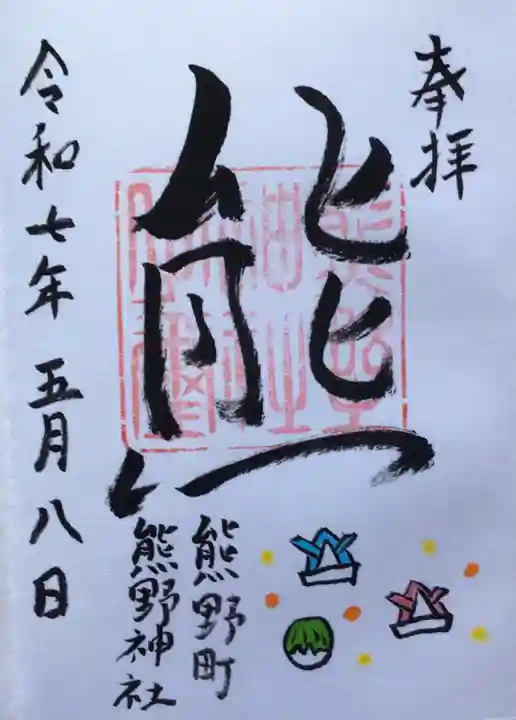 奉拝
熊
熊野町
熊野神社
令和七年 五月八日